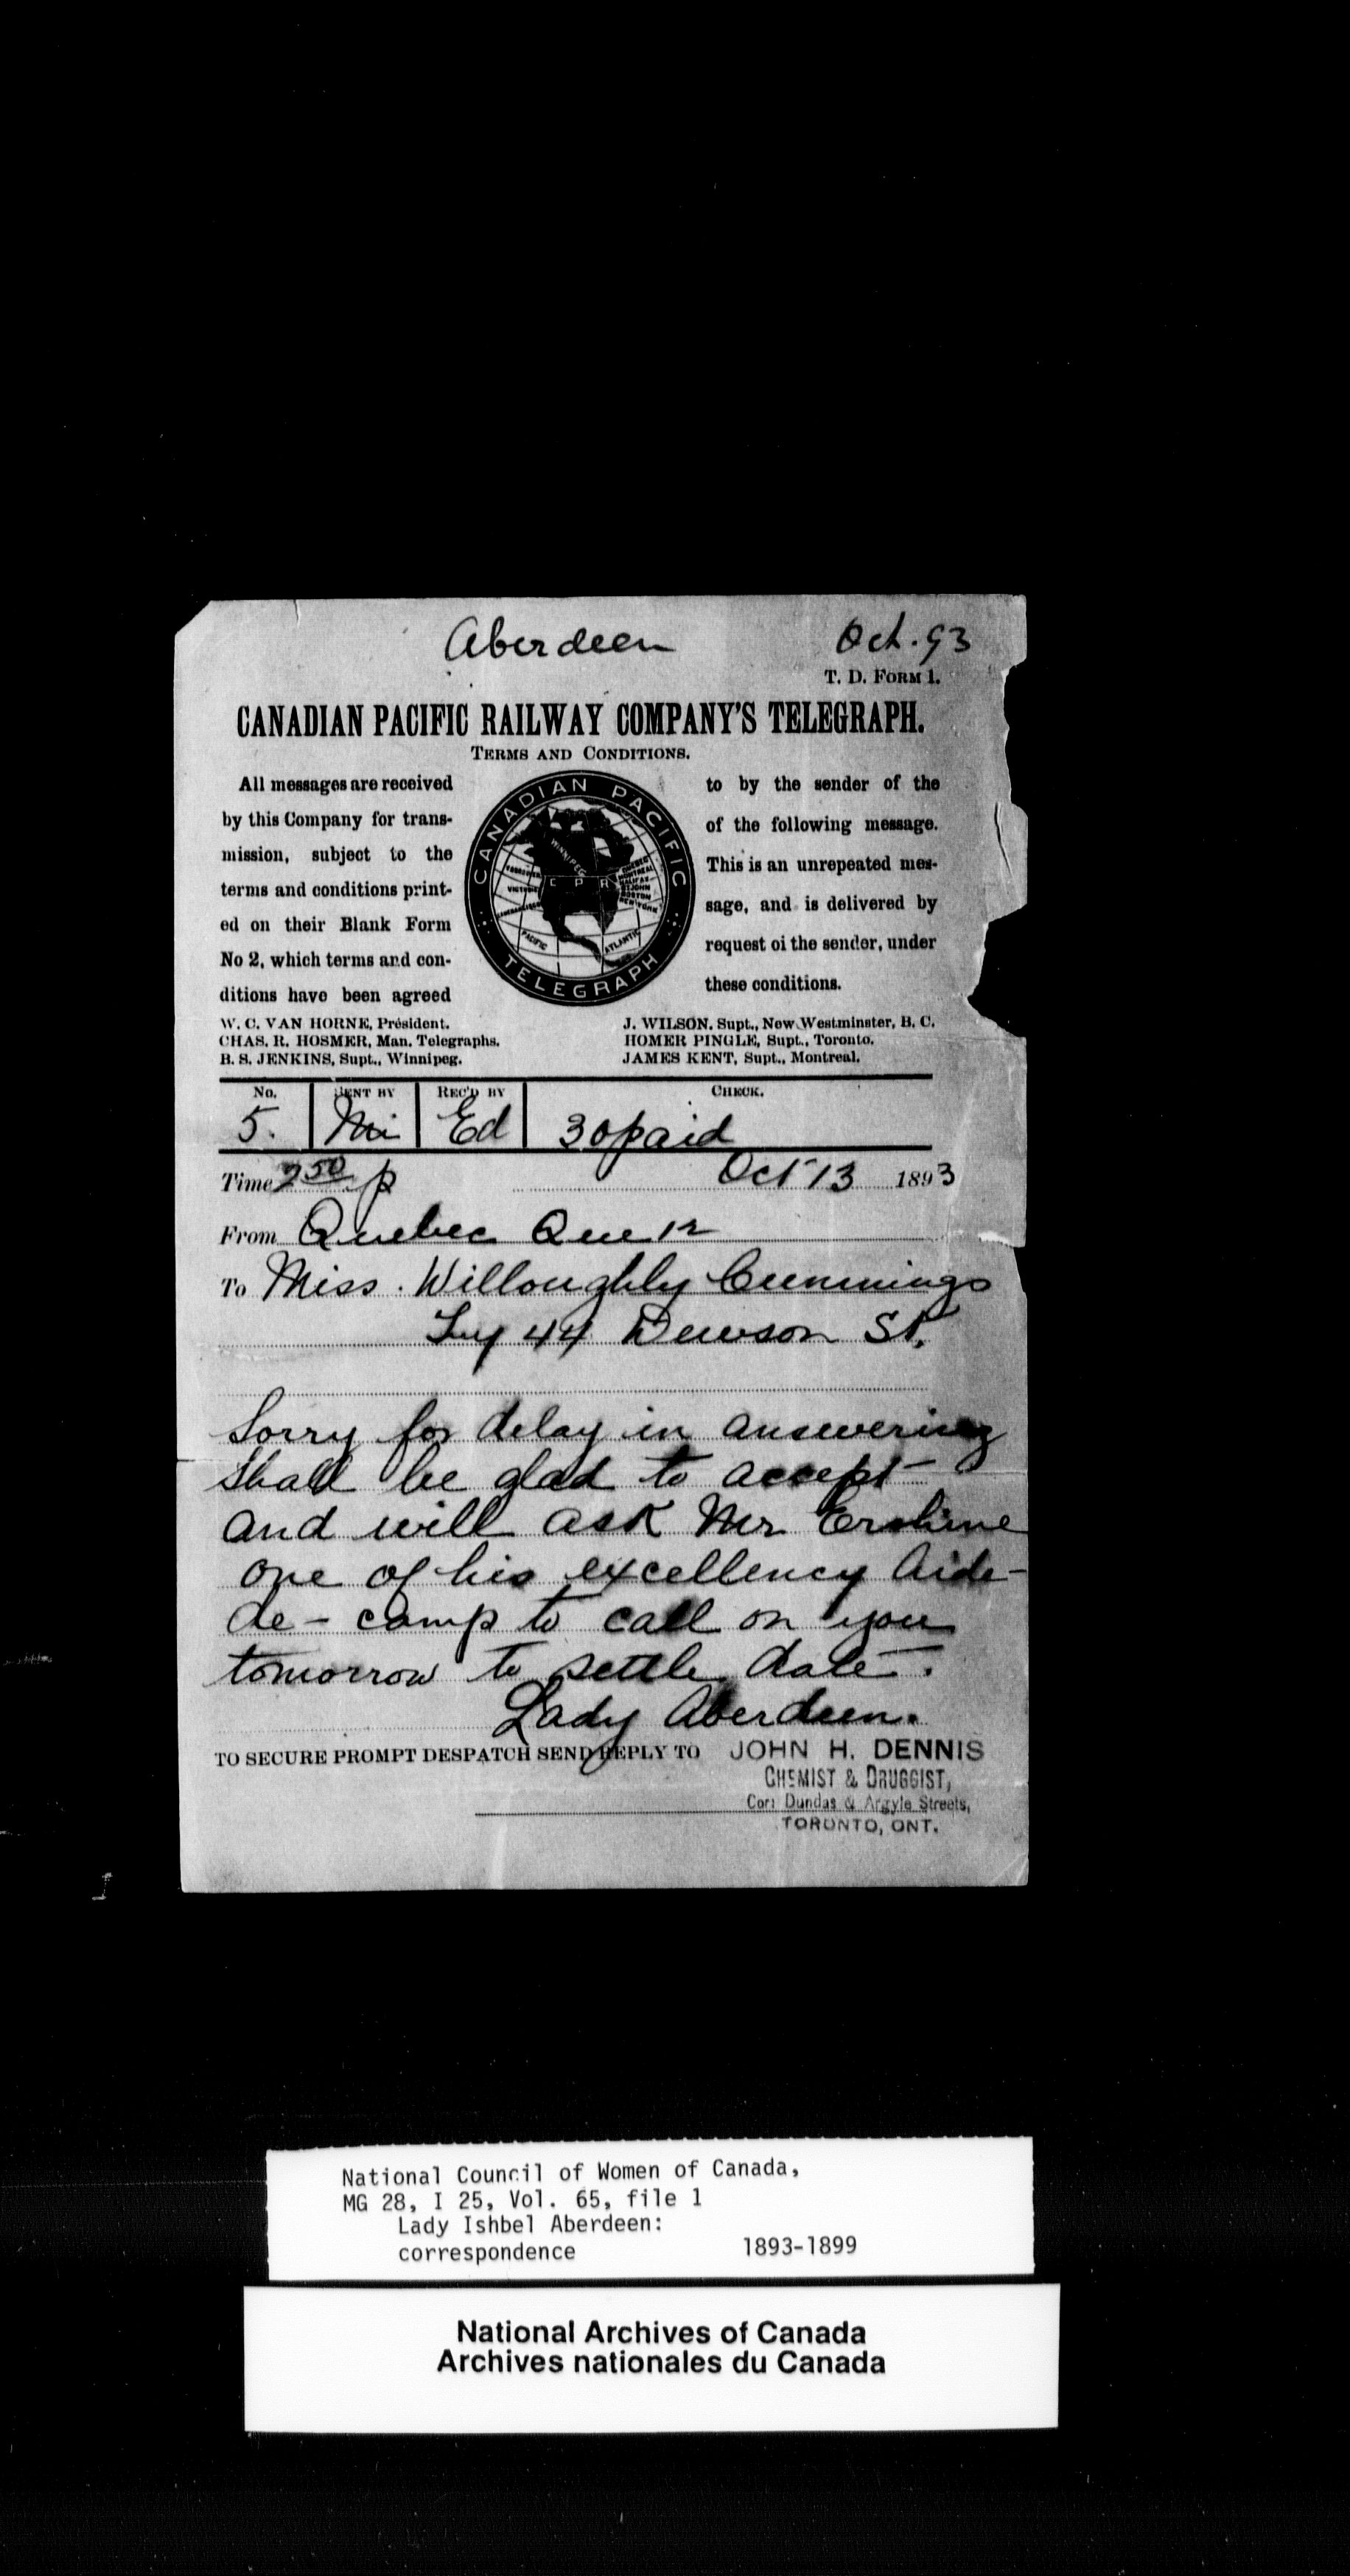 Aberdeen Oct. 93
T. D. FORM 1.
CANADIAN PACIFIC RAILWAY COMPANY'S TELEGRAPH.
TERMS AND CONDITIONS.
All messages are received
by this Company for trans-
mission, subject to the
terms and conditions print-
ed on their Blank Form
No 2, which terms and con-
ditions have been agreed
CANADIAN PACIFIC
TELEGRAPH
WINNIPEG
C P R
PACIFIC
ATLANTIC
to by the sender of the
of the following message.
This is an unrepeated mes-
sage, and is delivered by
request oi the sender, under
these conditions.
W. C. VAN HORNE, President.
CHAS. R. HOSMER, Man. Telegraphs.
B. S. JENKINS, Supt., Winnipeg.
J. WILSON, Supt., New Westminster, B. C.
HOMER PINGLE, Supt., Toronto.
JAMES KENT, Supt., Montreal.
No. SENT BY REC'D BY CHECK.
5. Mi Ed 30 paid
Time 2 50 p Oct 13 1893
From Quebec Que 12
To Miss. Willoughby Cummings
44 Dewson St.
Sorry for delay in answering
shall be glad to accept
and will ask Mr. Erskine
one of his excellency Aide-
de-camp to call on you
tomorrow to settle date.
Lady Aberdeen.
TO SECURE PROMPT DESPATCH SEND REPLY TO JOHN H. DENNIS
CHEMIST & DRUGGIST,
Cor: Dundas & Argyle Streets,
TORONTO, ONT.
National Council of Women of Canada,
MG 28, I 25, Vol. 65, file 1
Lady Ishbel Aberdeen:
correspondence 1893-1899
National Archives of Canada
Archives nationales du Canada